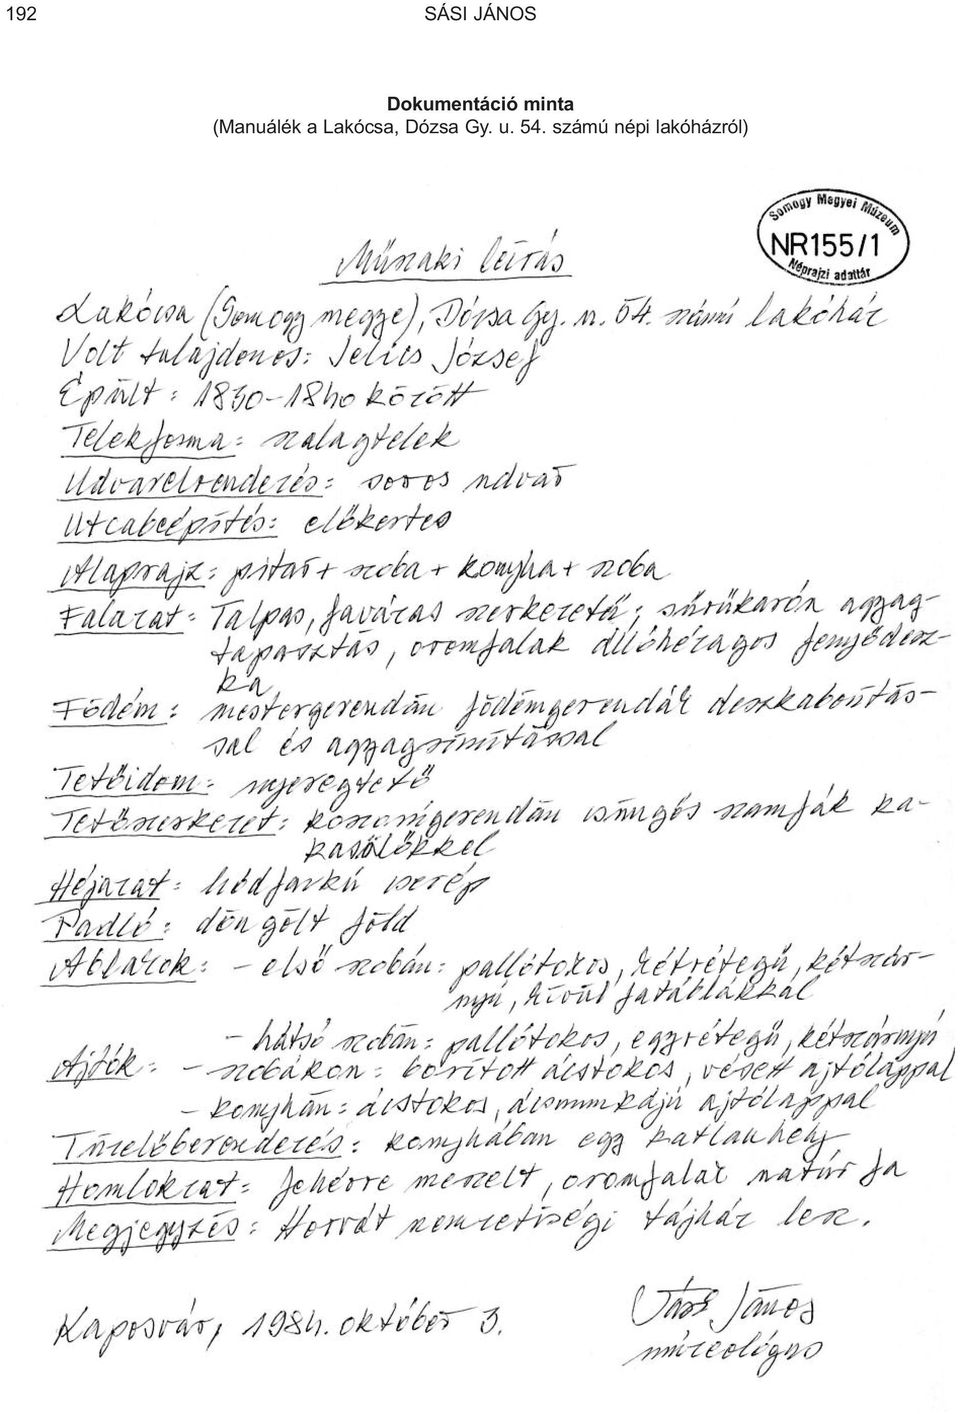 192
SÁSI JÁNOS
Dokumentáció minta
(Manuálék a Lakócsa, Dózsa Gy. u. 54. számú népi lakóházról)
Somogy Megyei Múzeum
NR155/1
Néprajzi adattár
Műszaki leírás
Lakócsa (Somogy megye), Dózsa Gy. u. 54. számú lakóház
Volt tulajdonos: Jelics József
Épült: 1830-1840 között
Telekforma: szalagtelek
Udvarelrendezés: soros udvar
Utcabeépítés: előkertes
Alaprajz: pitar + szoba + konyha + szoba
Falazat: Talpas, favázas szerkezetű; sűrűkarón agyag-
tapasztás, oromfalak állóhézagos fenyődesz-
ka
Födém: mestergerendán födémgerendák deszkaborítás-
sal és agyagsimítással
Tetőidom: nyeregtető
Tetőszerkezet: koszorúgerendán csüngős szarufák ka-
kasülőkkel
Héjazat: hódfarkú cserép
Padló: döngölt föld
Ablakok: - első szobán: pallótokos, kétrétegű, kétszár-
nyú, kívül fatáblákkal
- hátsó szobán: pallótokos, egyrétegű, kétszárnyú
Ajtók: - szobákon: borított ácstokos, vésett ajtólappal
- konyhán: ácstokos, ácsmunkájú ajtólappal
Tüzelőberendezés: konyhában egy katlanhely
Homlokzat: fehérre meszelt, oromfalak natúr fa
Megjegyzés: Horvát nemzetiségi tájház lesz.
Kaposvár, 1984. október 3.
Sási János
muzeológus